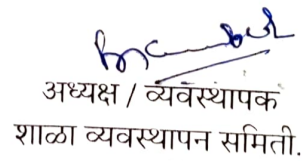 अध्यक्ष / व्यवस्थापक
शाळा व्यवस्थापन समिती.